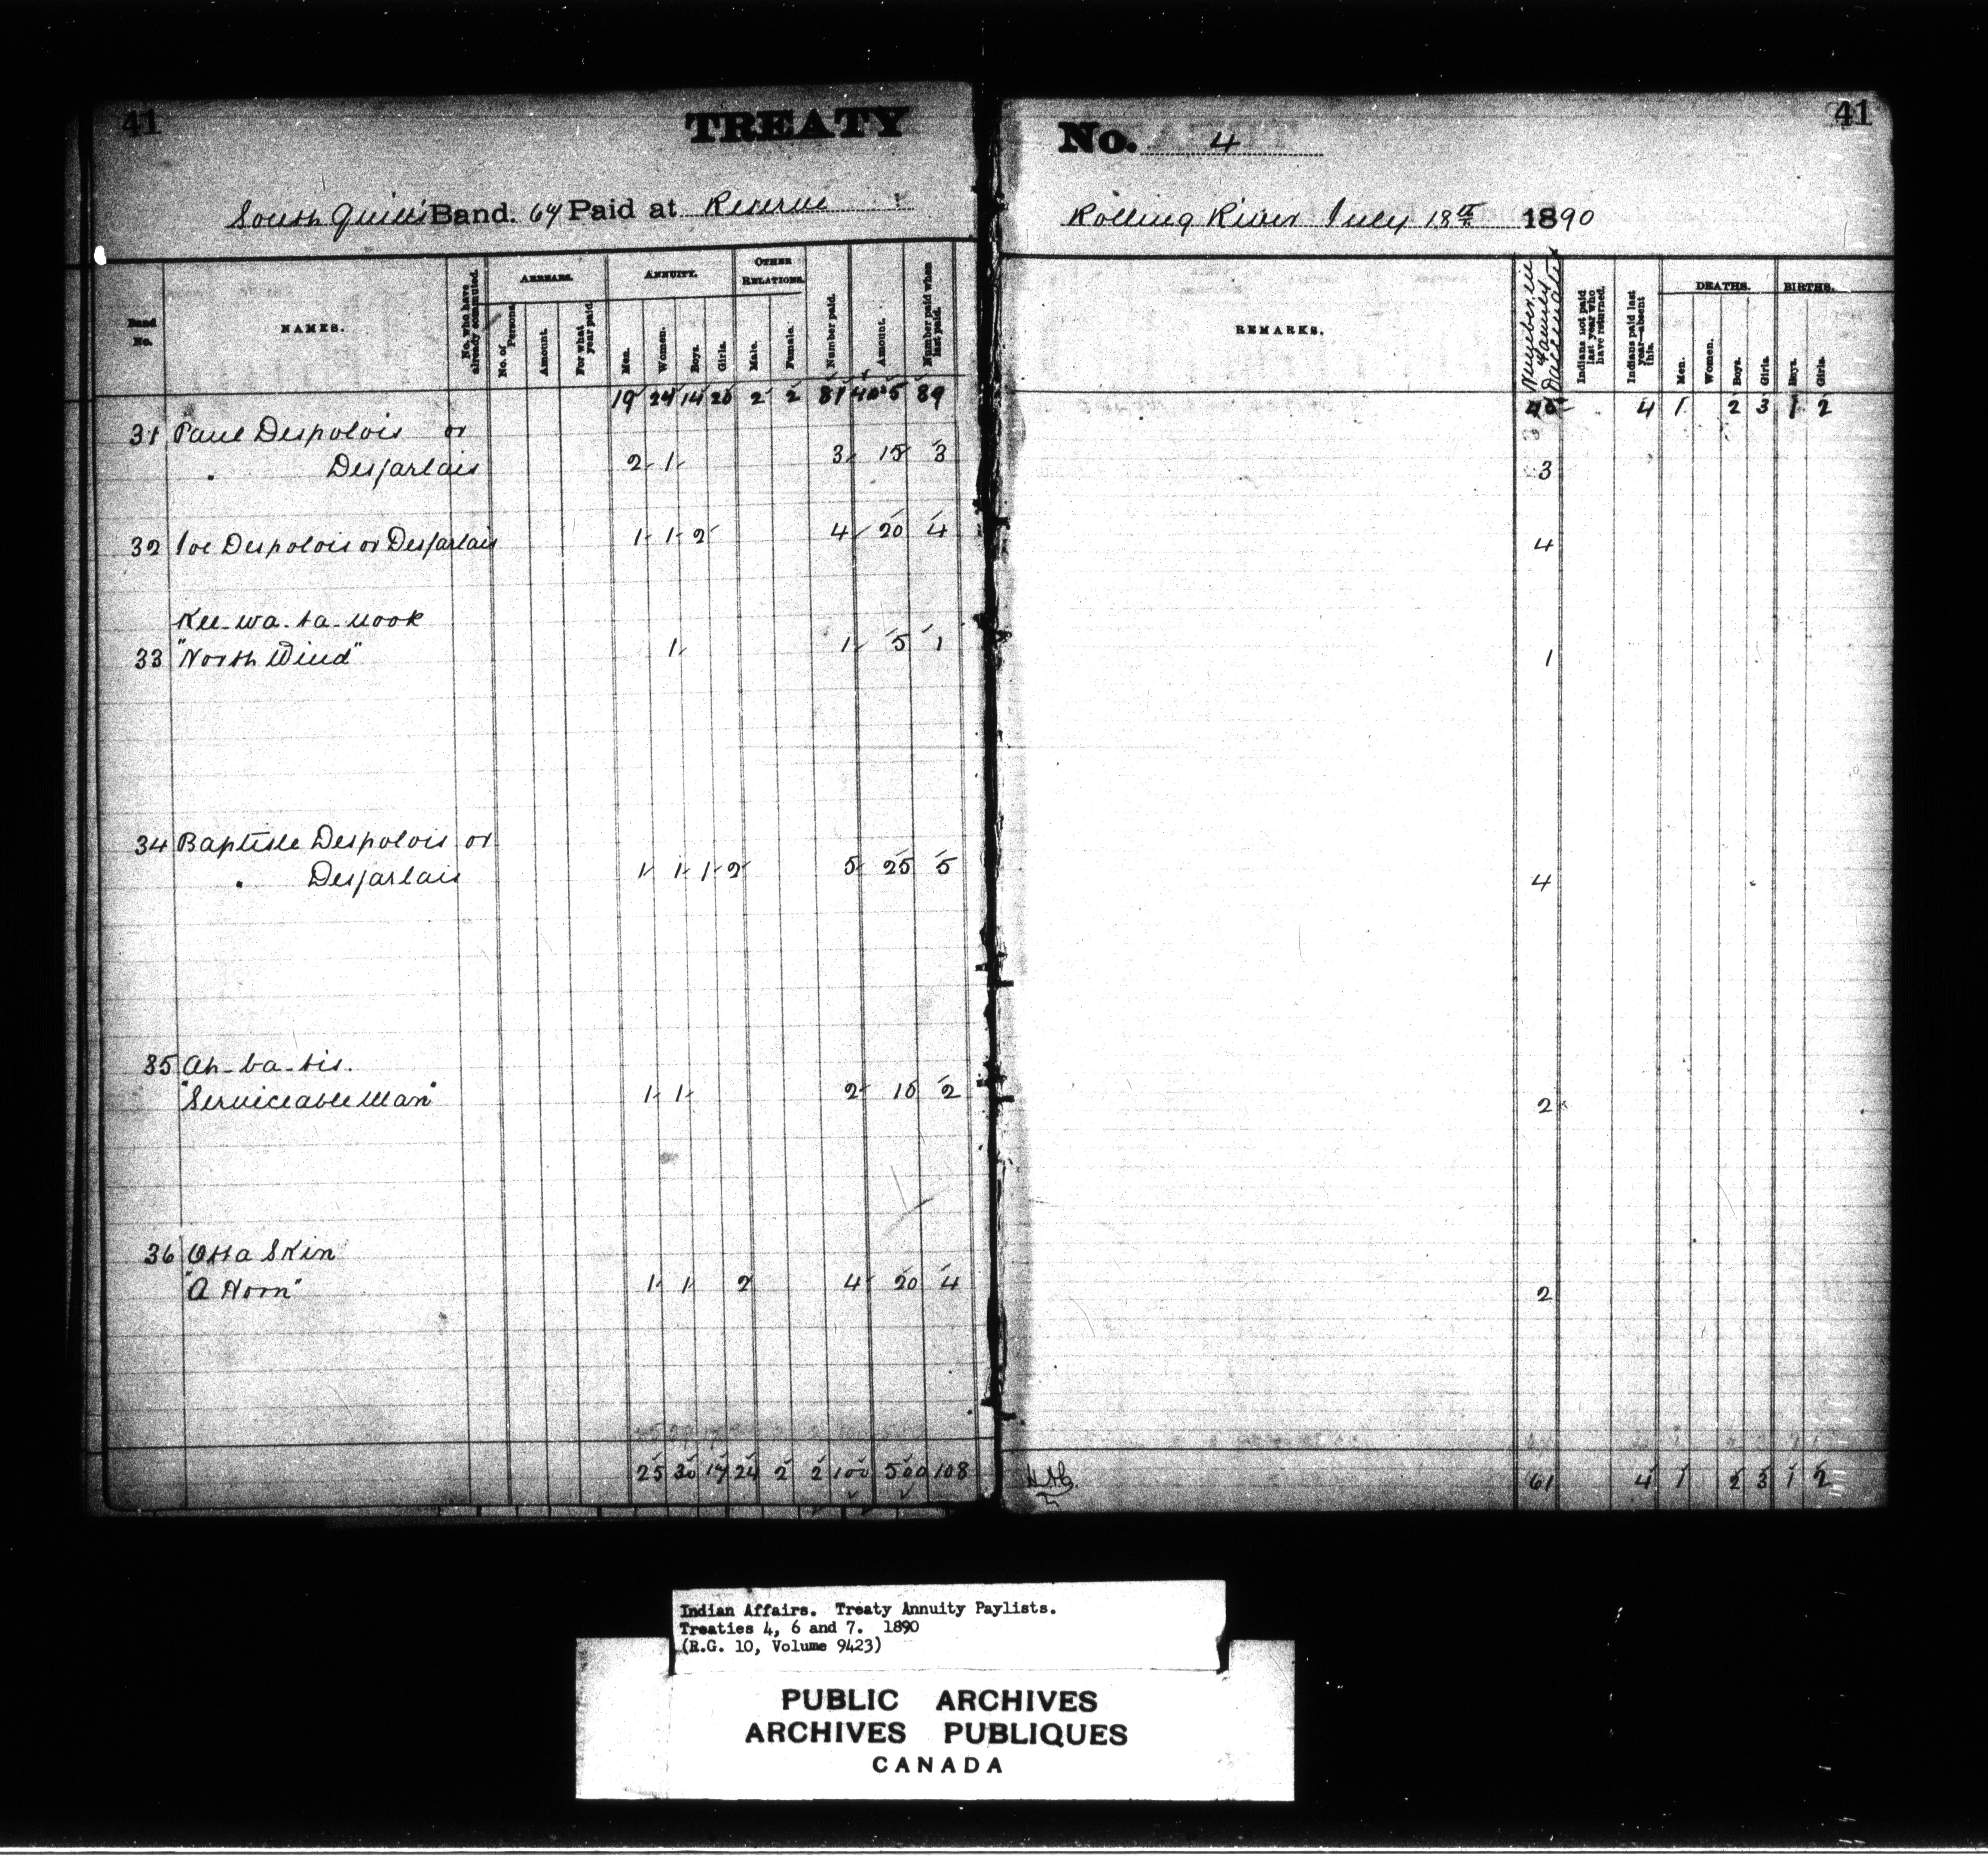 41
TREATY
No. 4
41
South Quill's Band. 64 Paid at Reserve
Rolling River July 18th 1890
Band No.
NAMES.
No. who have already commuted.
ARREARS.
No. of Persons
Amount.
For what year paid
ANNUITY.
Men.
Women.
Boys.
Girls.
OTHER RELATIONS.
Male.
Female.
Number paid.
Amount.
Number paid when last paid.
REMARKS.
Number in family
Indians not paid last year who have returned.
Indians paid last year—absent this.
DEATHS.
Men.
Women.
Boys.
Girls.
BIRTHS.
Boys.
Girls.
19 24 14 20 2 2 81 405 89
4 1 2 3 1 2
31 Paul Despolois or
Desjarlais 2 1 3 15 3 3
32 Joe Despolois or Desjarlais 1 1 2 4 20 4 4
Kee-wa-ta-nook
33 "North Wind" 1 1 5 1 1
34 Baptiste Despolois or
Desjarlais 1 1 1 2 5 25 5 4
35 Ah-ba-tis.
"Serviceable Man" 1 1 2 10 2 2
36 Otta Skin
"A Horn" 1 1 2 4 20 4 2
25 30 17 24 2 2 100 500 108
61 4 1 2 3 1 2
Indian Affairs. Treaty Annuity Paylists.
Treaties 4, 6 and 7. 1890
(R.G. 10, Volume 9423)
PUBLIC ARCHIVES
ARCHIVES PUBLIQUES
CANADA